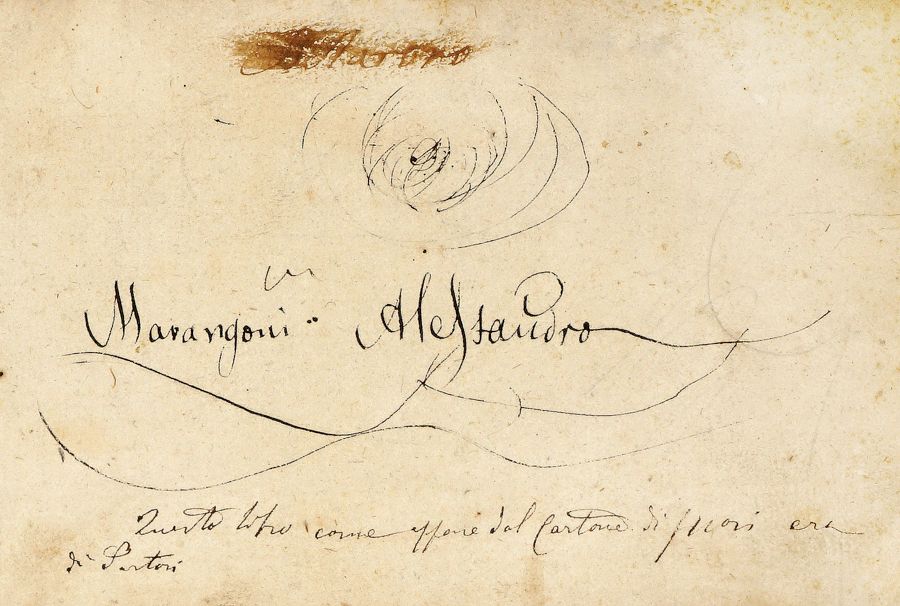 Marangoni Alessandro
Questo libro come appare dal Cartone di fuori era
di Sartori